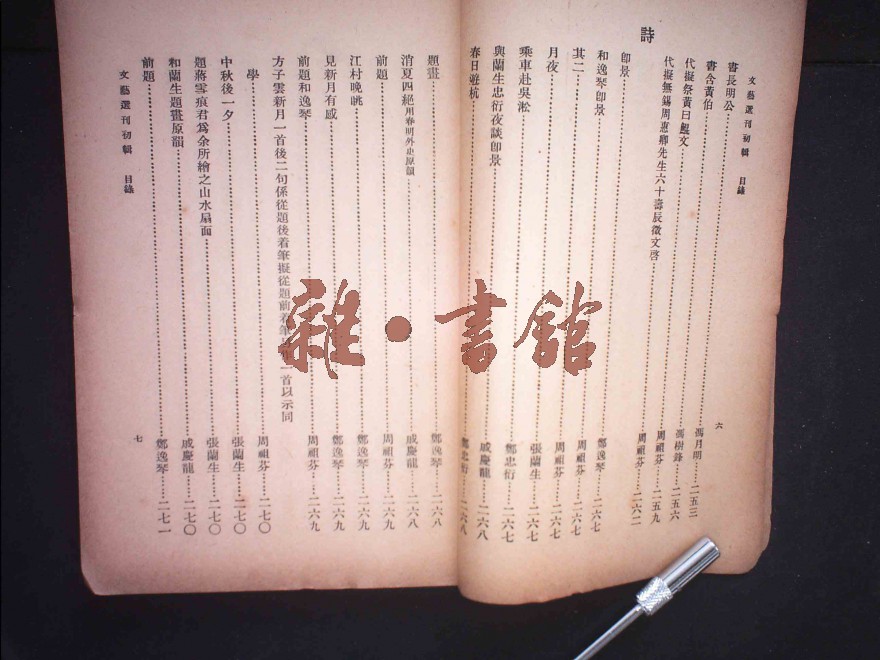 文藝選刊初輯　目錄
書長明公……馮月明……二五三
書含黃伯
代擬祭黃曰鯤文……馮樹鋒……二五六
代擬無錫周惠卿先生六十壽辰徵文啓……周祖芬……二五九
周祖芬……二六二
詩
卽景……鄭逸琴……二六七
和逸琴卽景……周祖芬……二六七
其二……周祖芬……二六七
月夜……張蘭生……二六七
乘車赴吳淞……鄭忠衍……二六七
與蘭生忠衍夜談卽景……戚慶龍……二六八
春日遊杭……鄭忠衍……二六八
六
題畫……鄭逸琴……二六八
消夏四絕用春明外史原韻……戚慶龍……二六八
前題……周祖芬……二六九
江村晚眺……鄭逸琴……二六九
見新月有感……鄭逸琴……二六九
前題和逸琴……周祖芬……二六九
方子雲新月一首後二句係從題後着筆擬從題前着筆一首以示同
學……周祖芬……二七〇
中秋後一夕……張蘭生……二七〇
題蔣雪痕君爲余所繪之山水扇面……張蘭生……二七〇
和蘭生題畫原韻……戚慶龍……二七〇
前題……鄭逸琴……二七一
文藝選刊初輯　目錄
七
雜•書館